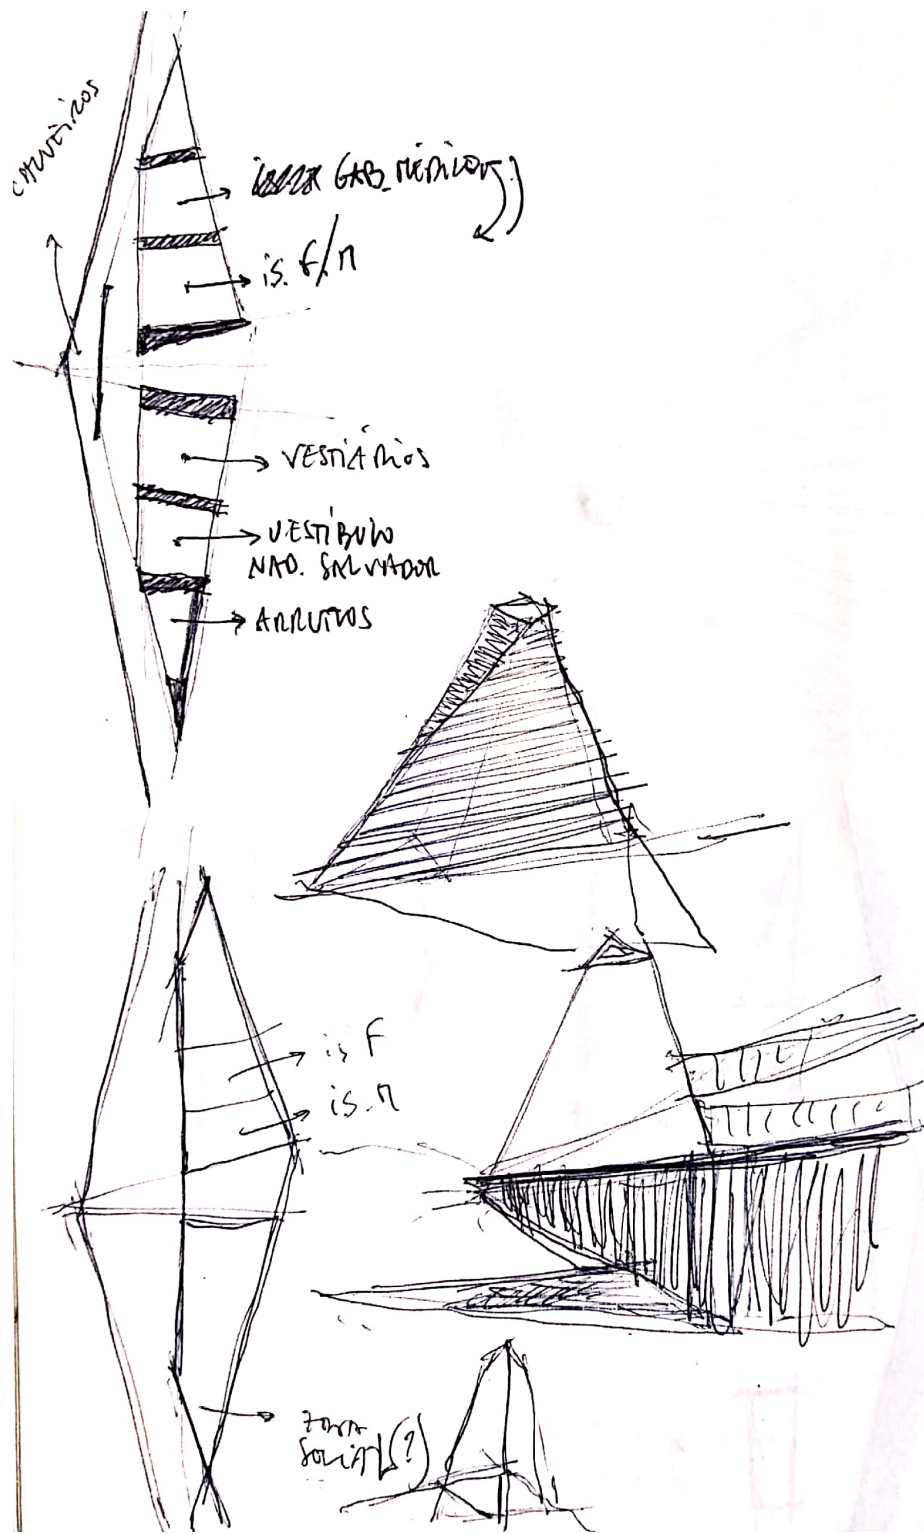 CHUVEIROS
GAB. MÉDICO
is. f/m
VESTIÁRIOS
VESTÍBULO
NAD. SALVADOR
ARRUMOS
is f
is. m
ZONA
SOCIAL (?)